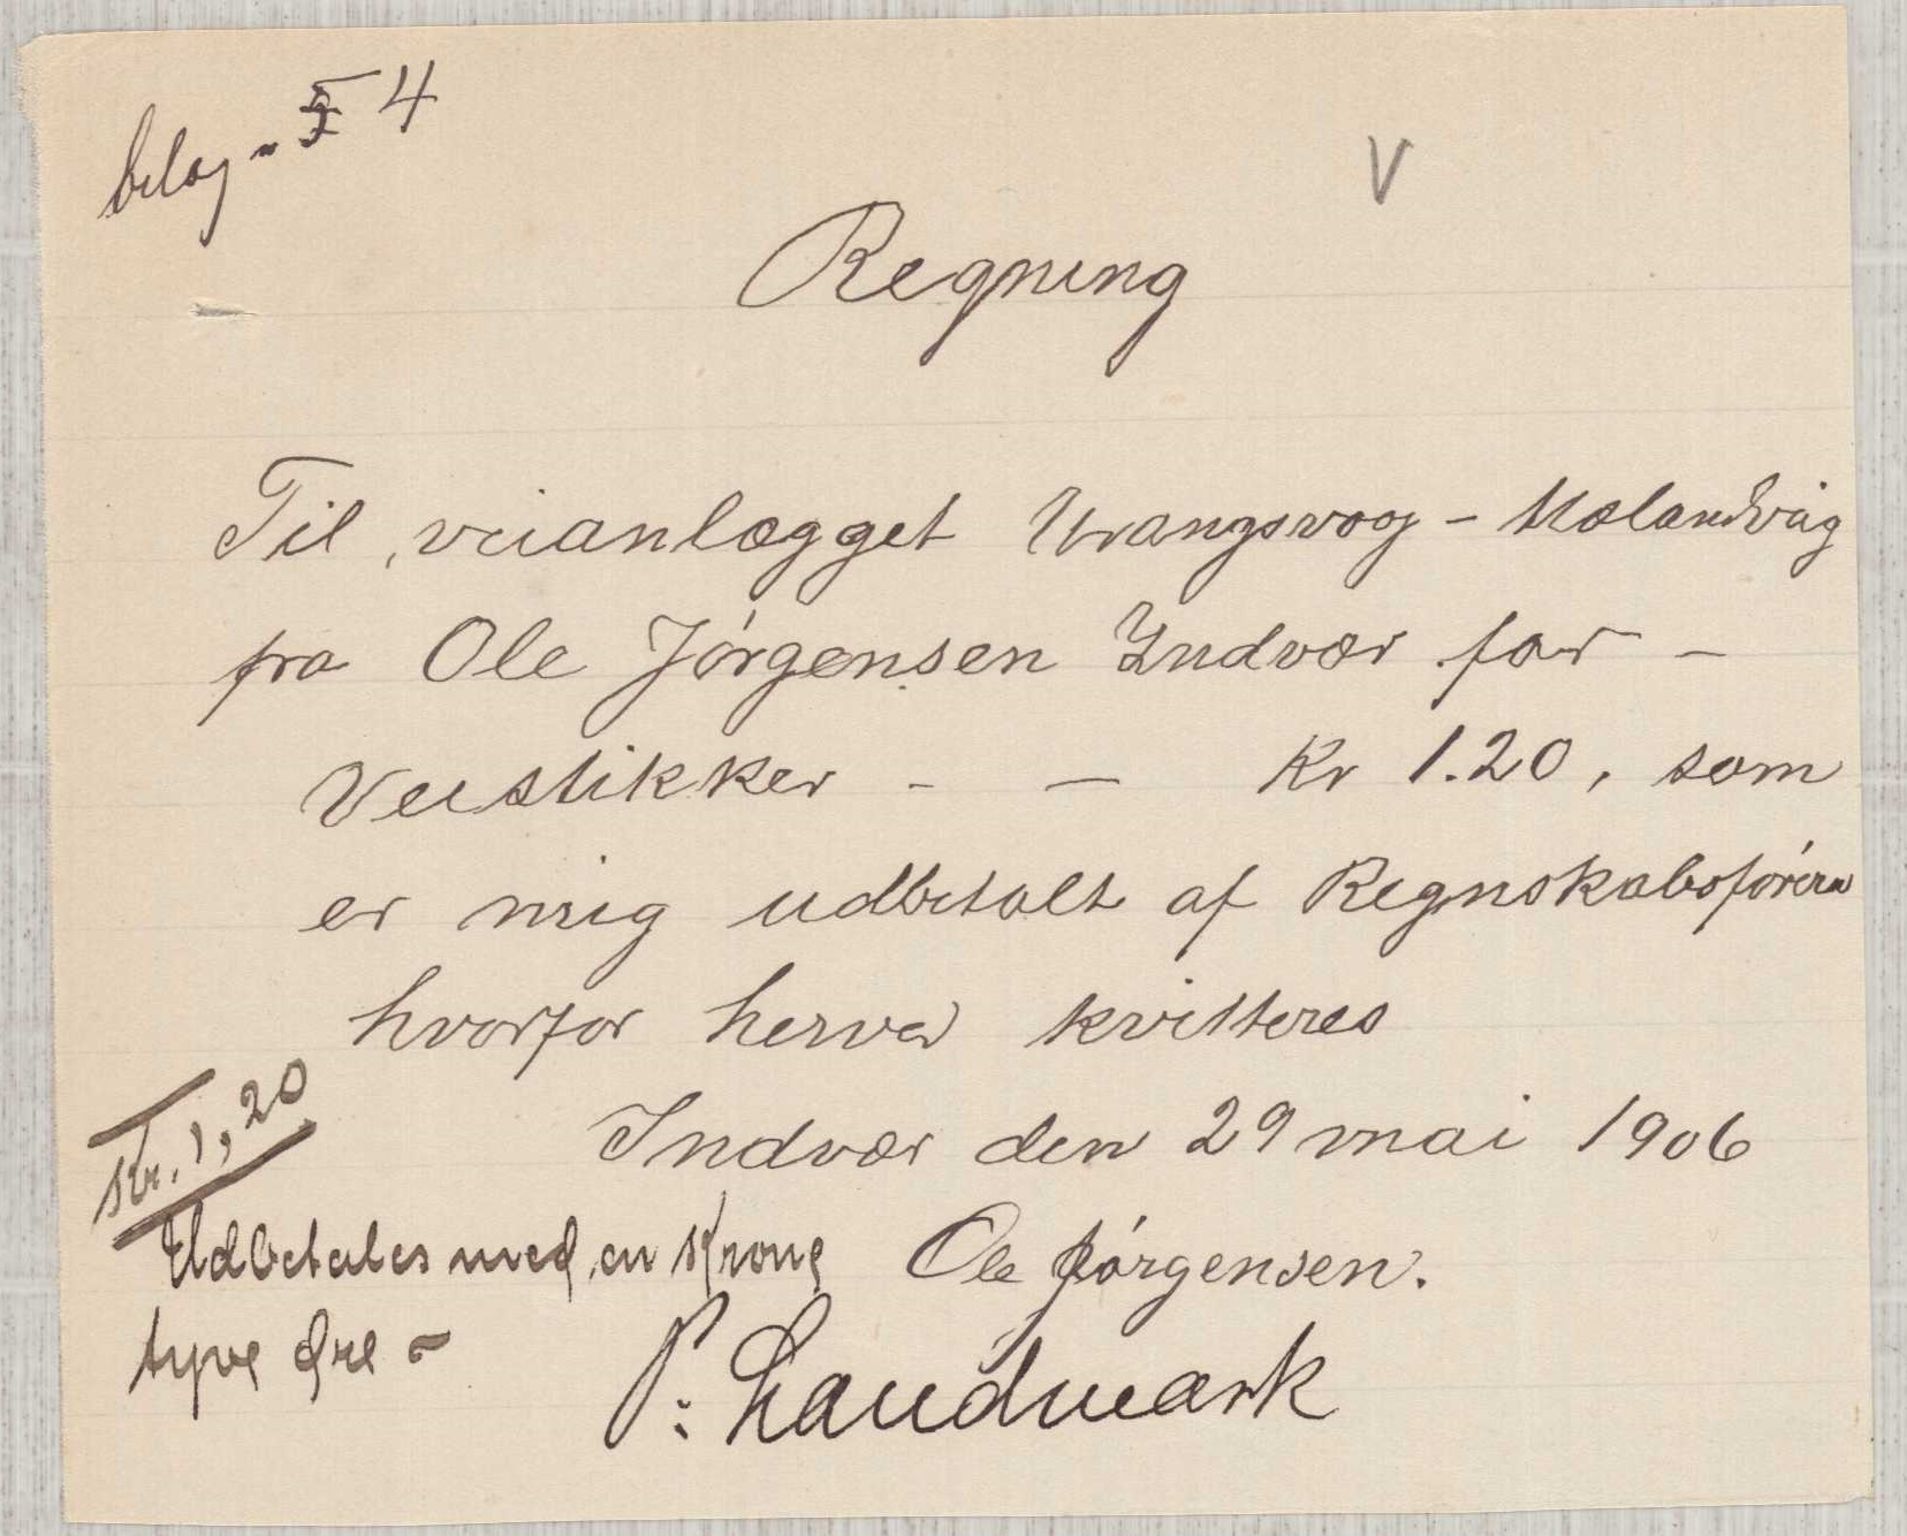 bilag - 4
V
Regning
Til veianlægget Vrangsvaag - Mølandvåg
fra Ole Jørgensen Indvær for -
Veistikker - - Kr 1.20, som
er mig udbetalt af Regnskabsføreren
hvorfor herved kvitteres
Indvær den 29 mai 1906
Kr. 1,20
Udbetales med en Krone
Ole Jørgensen.
tyve Øre -
P. Landmark